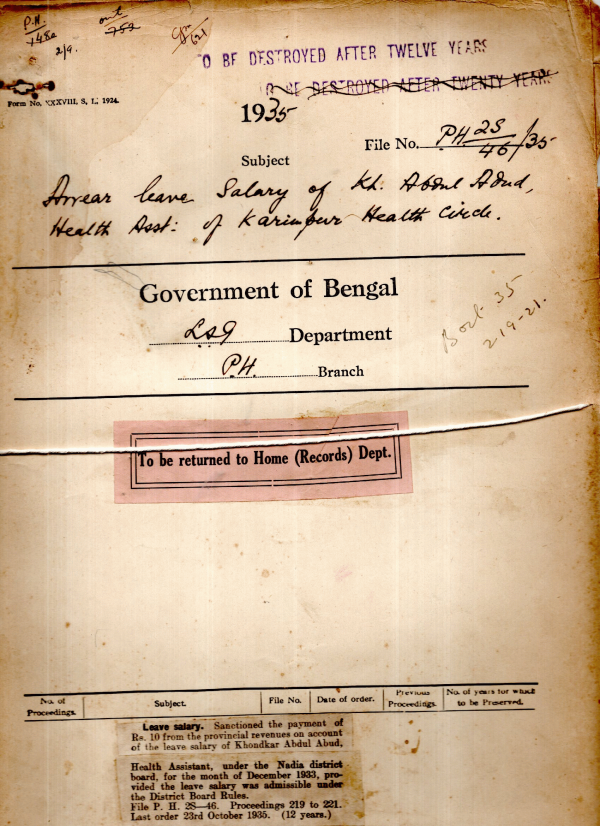 P.H.
148e
2/9.
out
752
621
TO BE DESTROYED AFTER TWELVE YEARS
BE DESTROYED AFTER TWENTY YEARS
Form No. XXXVIII, S. L. 1924.
1935
File No. PH 2S/46/35
Subject
Arrear leave Salary of Kh. Abdul Abud,
Health Asst: of Karimpur Health Circle.
Government of Bengal
LSG Department
P.H. Branch
35
219-21.
To be returned to Home (Records) Dept.
No. of Proceedings. Subject. File No. Date of order. Previous Proceedings. No. of years for which to be Preserved.
Leave salary. Sanctioned the payment of
Rs. 10 from the provincial revenues on account
of the leave salary of Khondkar Abdul Abud,
Health Assistant, under the Nadia district
board, for the month of December 1933, pro-
vided the leave salary was admissible under
the District Board Rules.
File P. H. 2S—46. Proceedings 219 to 221.
Last order 23rd October 1935. (12 years.)